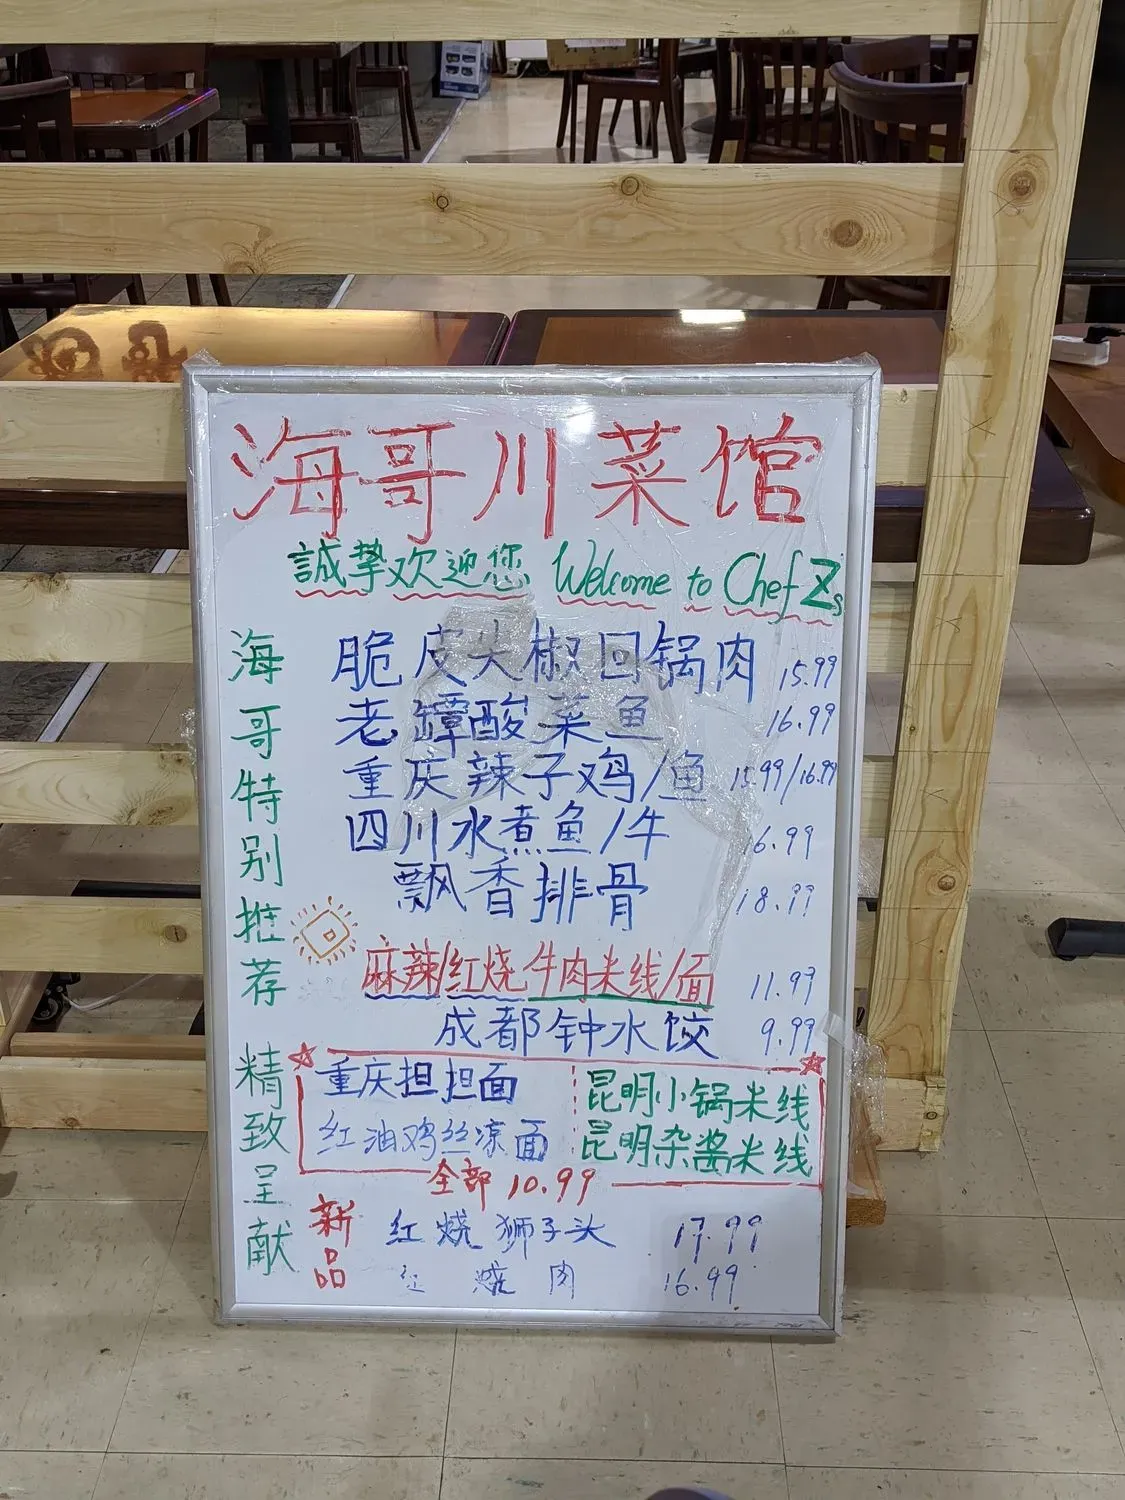 海哥川菜馆
誠挚欢迎您 Welcome to Chef Zs
海哥特别推荐 精致呈献
脆皮尖椒回锅肉 15.99
老罈酸菜鱼 16.99
重庆辣子鸡/鱼 15.99/16.99
四川水煮鱼/牛 16.99
飘香排骨 18.99
麻辣/红烧牛肉米线/面 11.99
成都钟水饺 9.99
重庆担担面 昆明小锅米线
红油鸡丝凉面 昆明杂酱米线
全部 10.99
新品
红烧狮子头 17.99
红烧肉 16.99